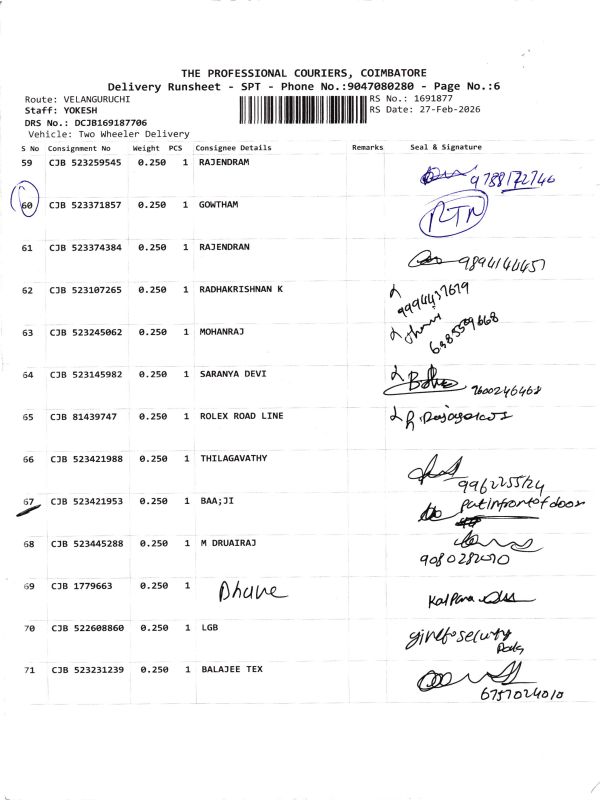 THE PROFESSIONAL COURIERS, COIMBATORE
Delivery Runsheet - SPT - Phone No.:9047080280 - Page No.:6
Route: VELANGURUCHI RS No.: 1691877
Staff: YOKESH RS Date: 27-Feb-2026
DRS No.: DCJB169187706
Vehicle: Two Wheeler Delivery
S No Consignment No Weight PCS Consignee Details Remarks Seal & Signature
59 CJB 523259545 0.250 1 RAJENDRAM
9788172746
60 CJB 523371857 0.250 1 GOWTHAM RTN
61 CJB 523374384 0.250 1 RAJENDRAN
62 CJB 523107265 0.250 1 RADHAKRISHNAN K
9994437679
63 CJB 523245062 0.250 1 MOHANRAJ
6385509668
64 CJB 523145982 0.250 1 SARANYA DEVI
9600246468
65 CJB 81439747 0.250 1 ROLEX ROAD LINE
66 CJB 523421988 0.250 1 THILAGAVATHY
9962255124
67 CJB 523421953 0.250 1 BAA;JI Put in front of door
68 CJB 523445288 0.250 1 M DRUAIRAJ
69 CJB 1779663 0.250 1 Dhane Kalpana
70 CJB 522608860 0.250 1 LGB
71 CJB 523231239 0.250 1 BALAJEE TEX
6757024010